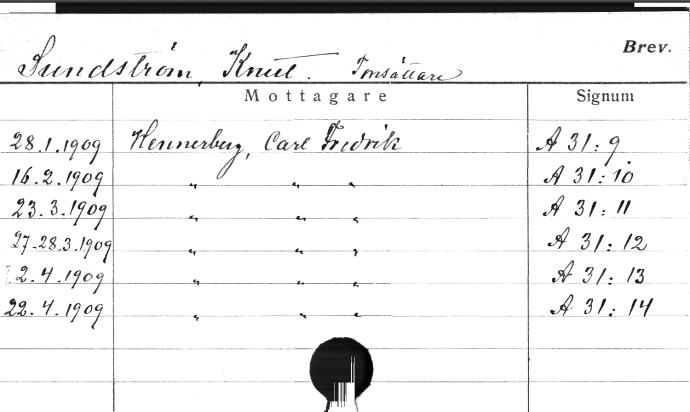 Brev.
Sundström, Knut. Tonsättare
Mottagare Signum
28.1.1909 Hennerberg, Carl Fredrik A 31:9
16.2.1909 " " " A 31:10
23.3.1909 " " " A 31:11
27-28.3.1909 " " " A 31:12
2.4.1909 " " " A 31:13
22.4.1909 " " " A 31:14